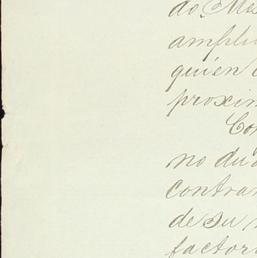 do Me
ampli
quien
proxim
Con
no du
contra
de su
factor